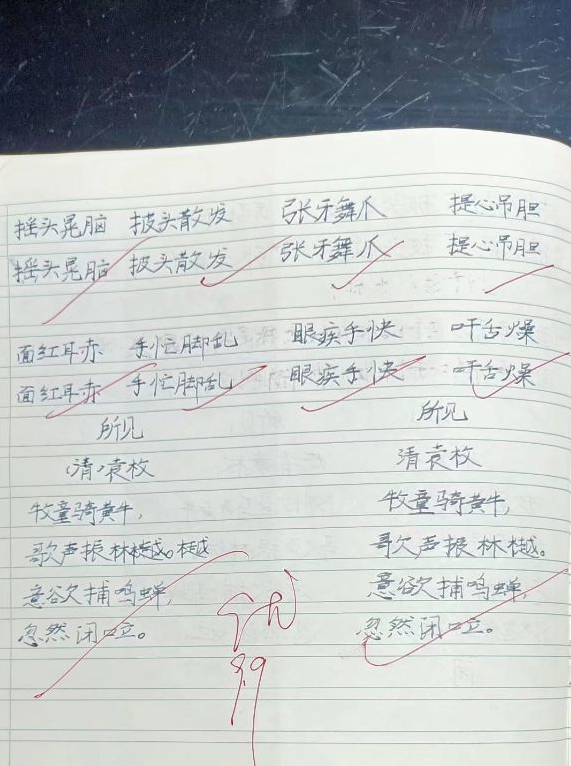 摇头晃脑 披头散发 张牙舞爪 提心吊胆
摇头晃脑 披头散发 张牙舞爪 提心吊胆
面红耳赤 手忙脚乱 眼疾手快 口干舌燥
面红耳赤 手忙脚乱 眼疾手快 口干舌燥
所见
(清)袁枚
牧童骑黄牛,
歌声振林樾。樾
意欲捕鸣蝉,
忽然闭口立。
所见
清 袁枚
牧童骑黄牛,
歌声振林樾。
意欲捕鸣蝉,
忽然闭口立。
9.9